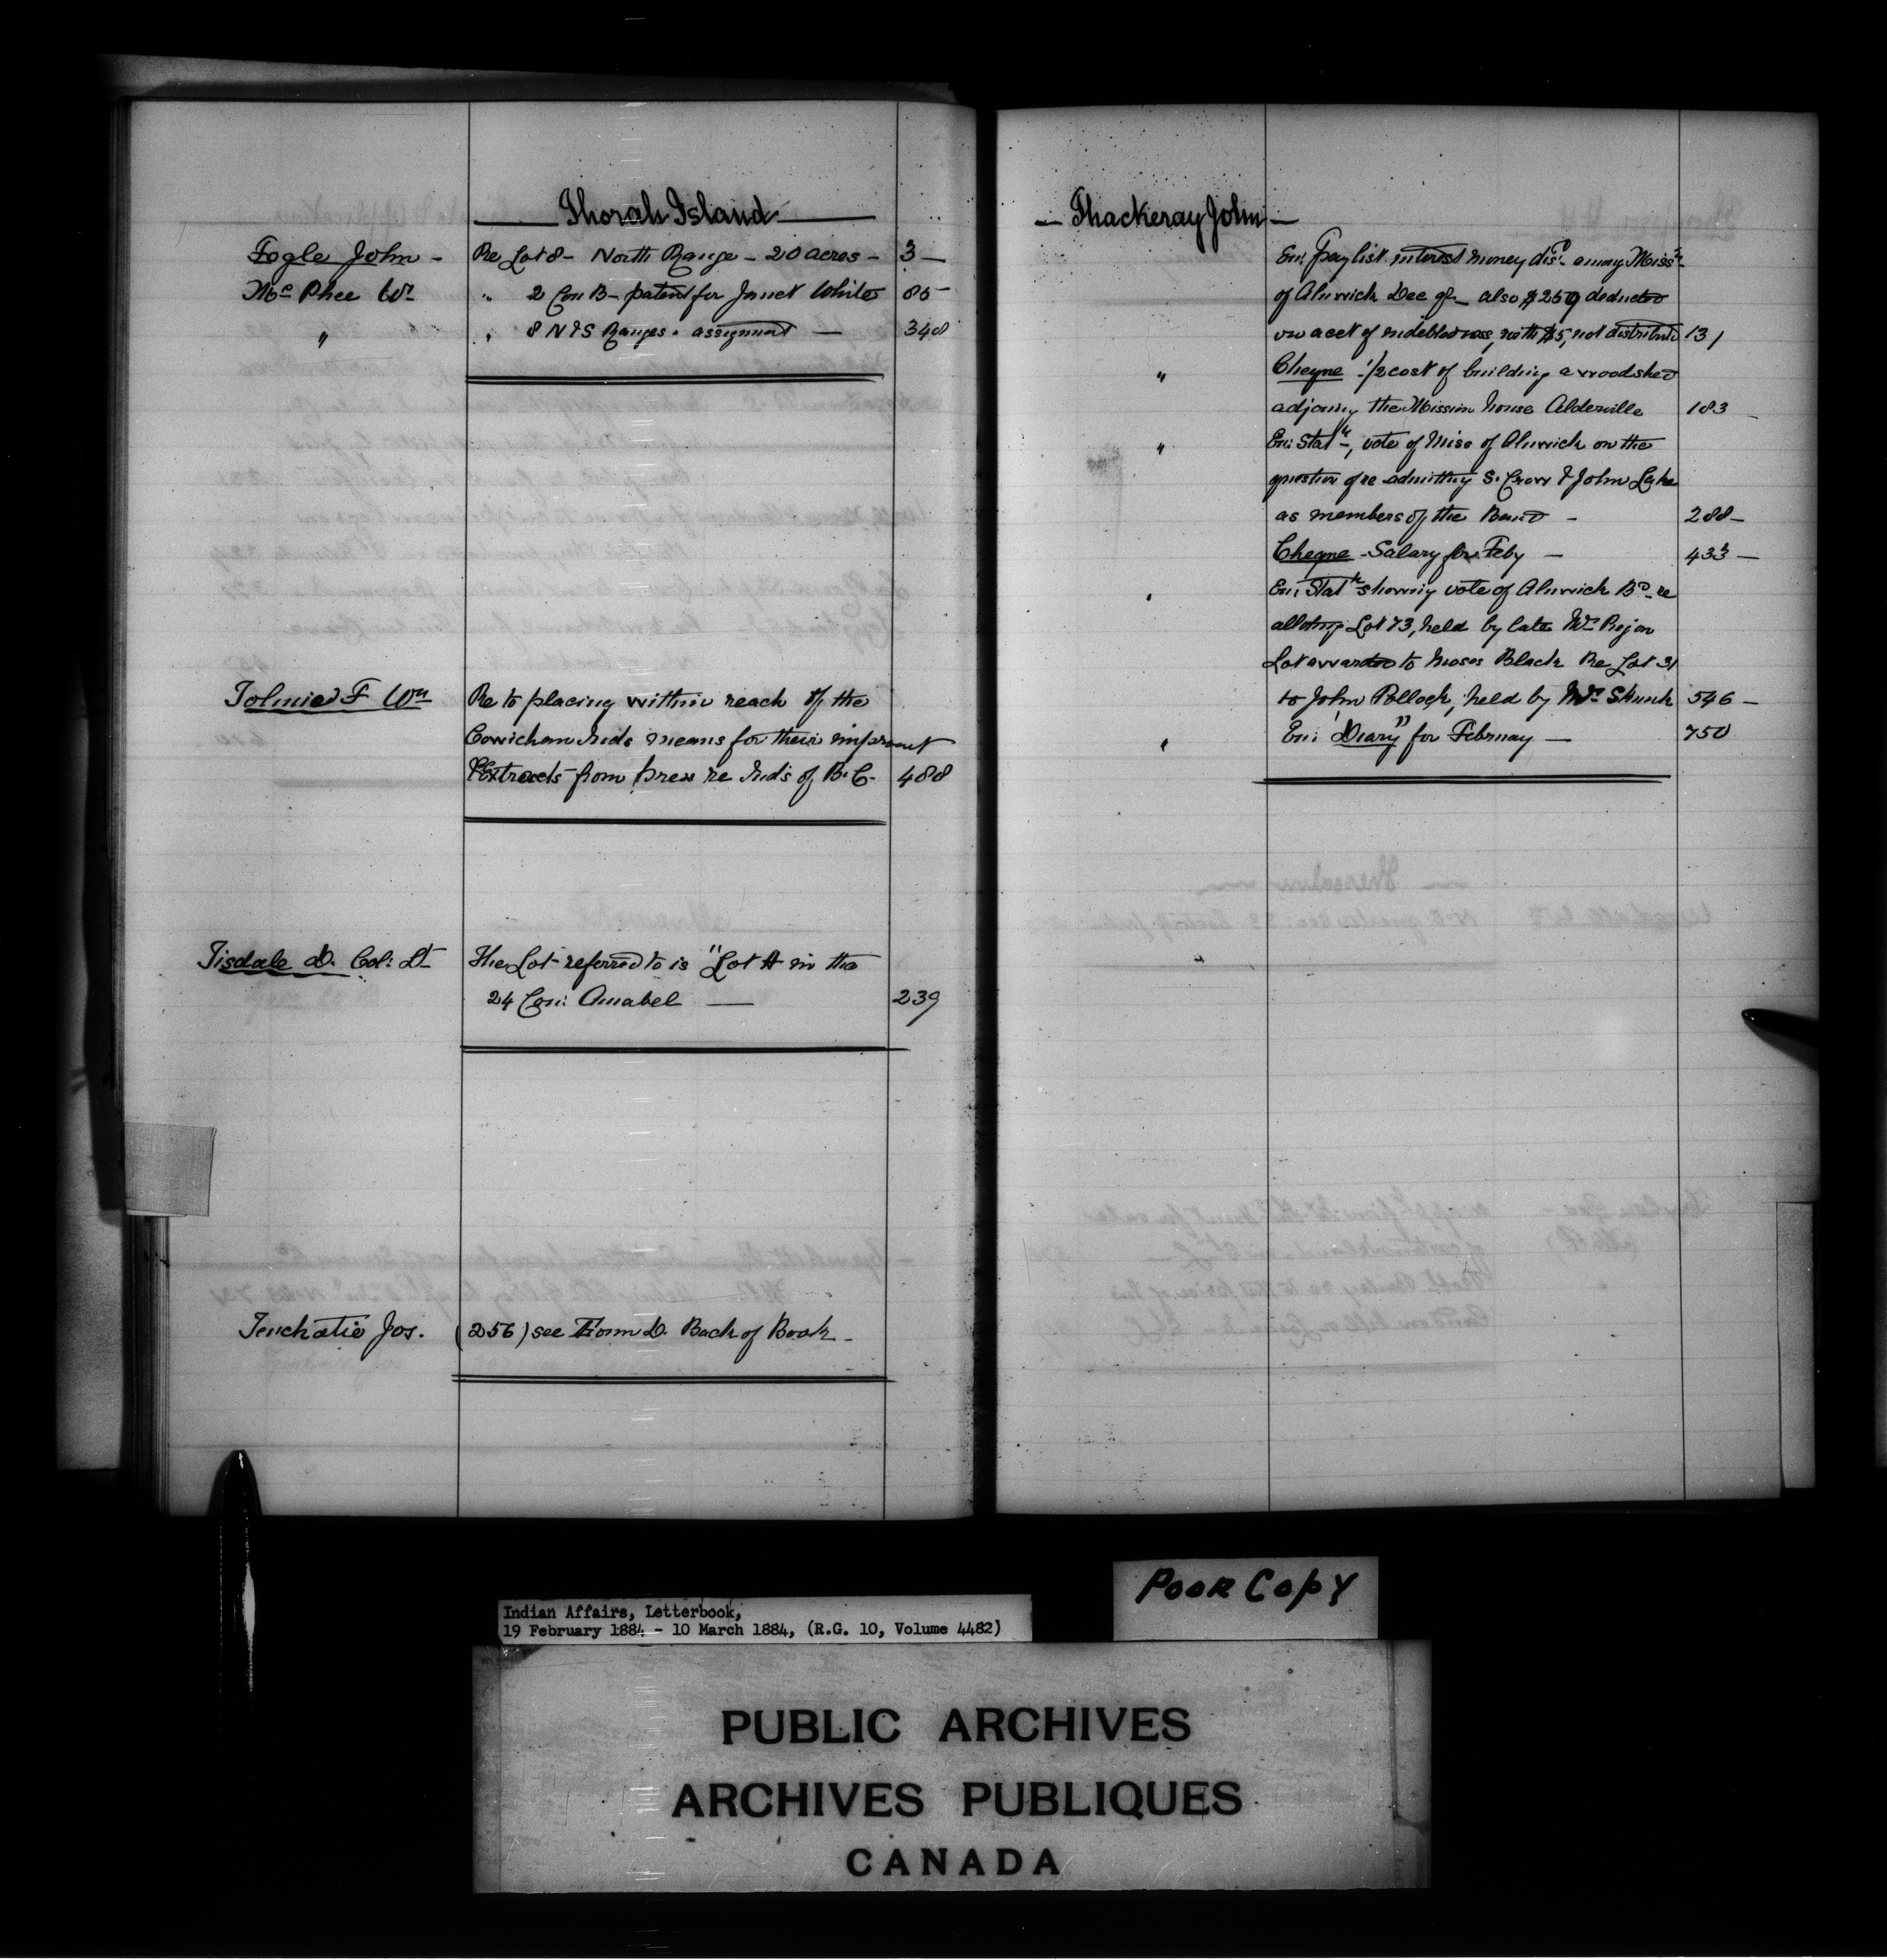 Thorah Island
Fogle John - Re Lot 8 - North Range - 20 acres - 3 -
McPhee Wm " 2 Con B - patent for Janet White 85 -
" " 8 N & S Ranges . assignment - 348
Tolmie F Wm Re to placing within reach of the
Cowichan Inds means for their improvmt
Extracts from press re Inds of B.C. 488
Tisdale D. Col: Lt The Lot referred to is "Lot A in the
24 Con: Amabel - 239
Jos. (256) see Form D. Back of Book -
- Thackeray John -
En: pay list interest money disd. among Missn.
of Alnwick Dec qr - also $259 deducted
on acct of indebtedness, with $5, not distributed 131
" Cheque - 1/2 cost of building a woodshed
adjoining the Mission house Alderville 183 -
" En: Statmt -, vote of Miss of Alnwick on the
question of re admitting S. Crow & John Lake
as members of the Band - 288 -
Cheque - Salary for Feby - 433 -
" En: Statmt showing vote of Alnwick Bd. re
allotmg Lot 73, held by late
Lot awarded to Moses Black Re Lot 31
to John Pollock, held by Skunk 546 -
" En: "Diary" for February - 750
Poor Copy
Indian Affairs, Letterbook,
19 February 1884 - 10 March 1884, (R.G. 10, Volume 4482)
PUBLIC ARCHIVES
ARCHIVES PUBLIQUES
CANADA